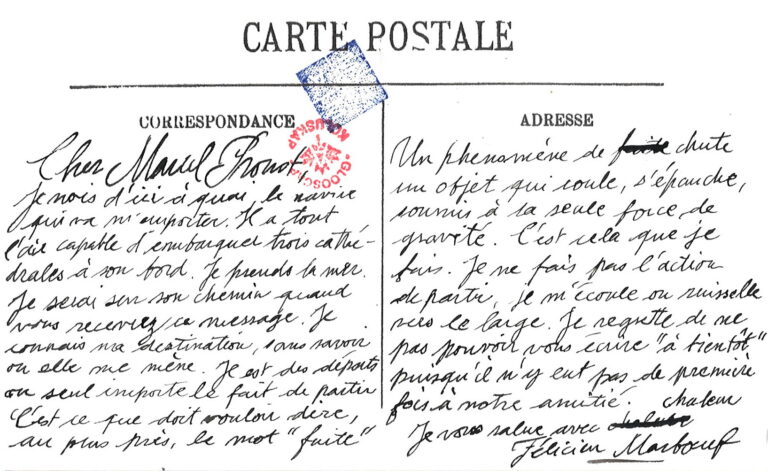 CARTE POSTALE
CORRESPONDANCE
Cher Marcel Proust,
Je vois d'ici à quai, le navire
qui va m'emporter. Il a tout
l'air capable d'embarquer trois cathé-
drales à son bord. Je prends la mer.
Je serai sur son chemin quand
vous recevrez ce message. Je
connais ma destination, sans savoir
où elle me mène. Il est des départs
où seul importe le fait de partir
C'est ce que doit vouloir dire,
au plus près, le mot "fuite"
GLOOSCAP
KOLUSKAP
ADRESSE
Un phénomène de fuite chute
un objet qui coule, s'épanche,
soumis à la seule force de
gravité. C'est cela que je
fais. Je ne fais pas l'action
de partir, je m'écoule ou ruisselle
vers le large. Je regrette de ne
pas pouvoir vous écrire "à bientôt"
puisqu'il n'y eut pas de première
fois à notre amitié. chaleur
Je vous salue avec
Félicien Marboeuf